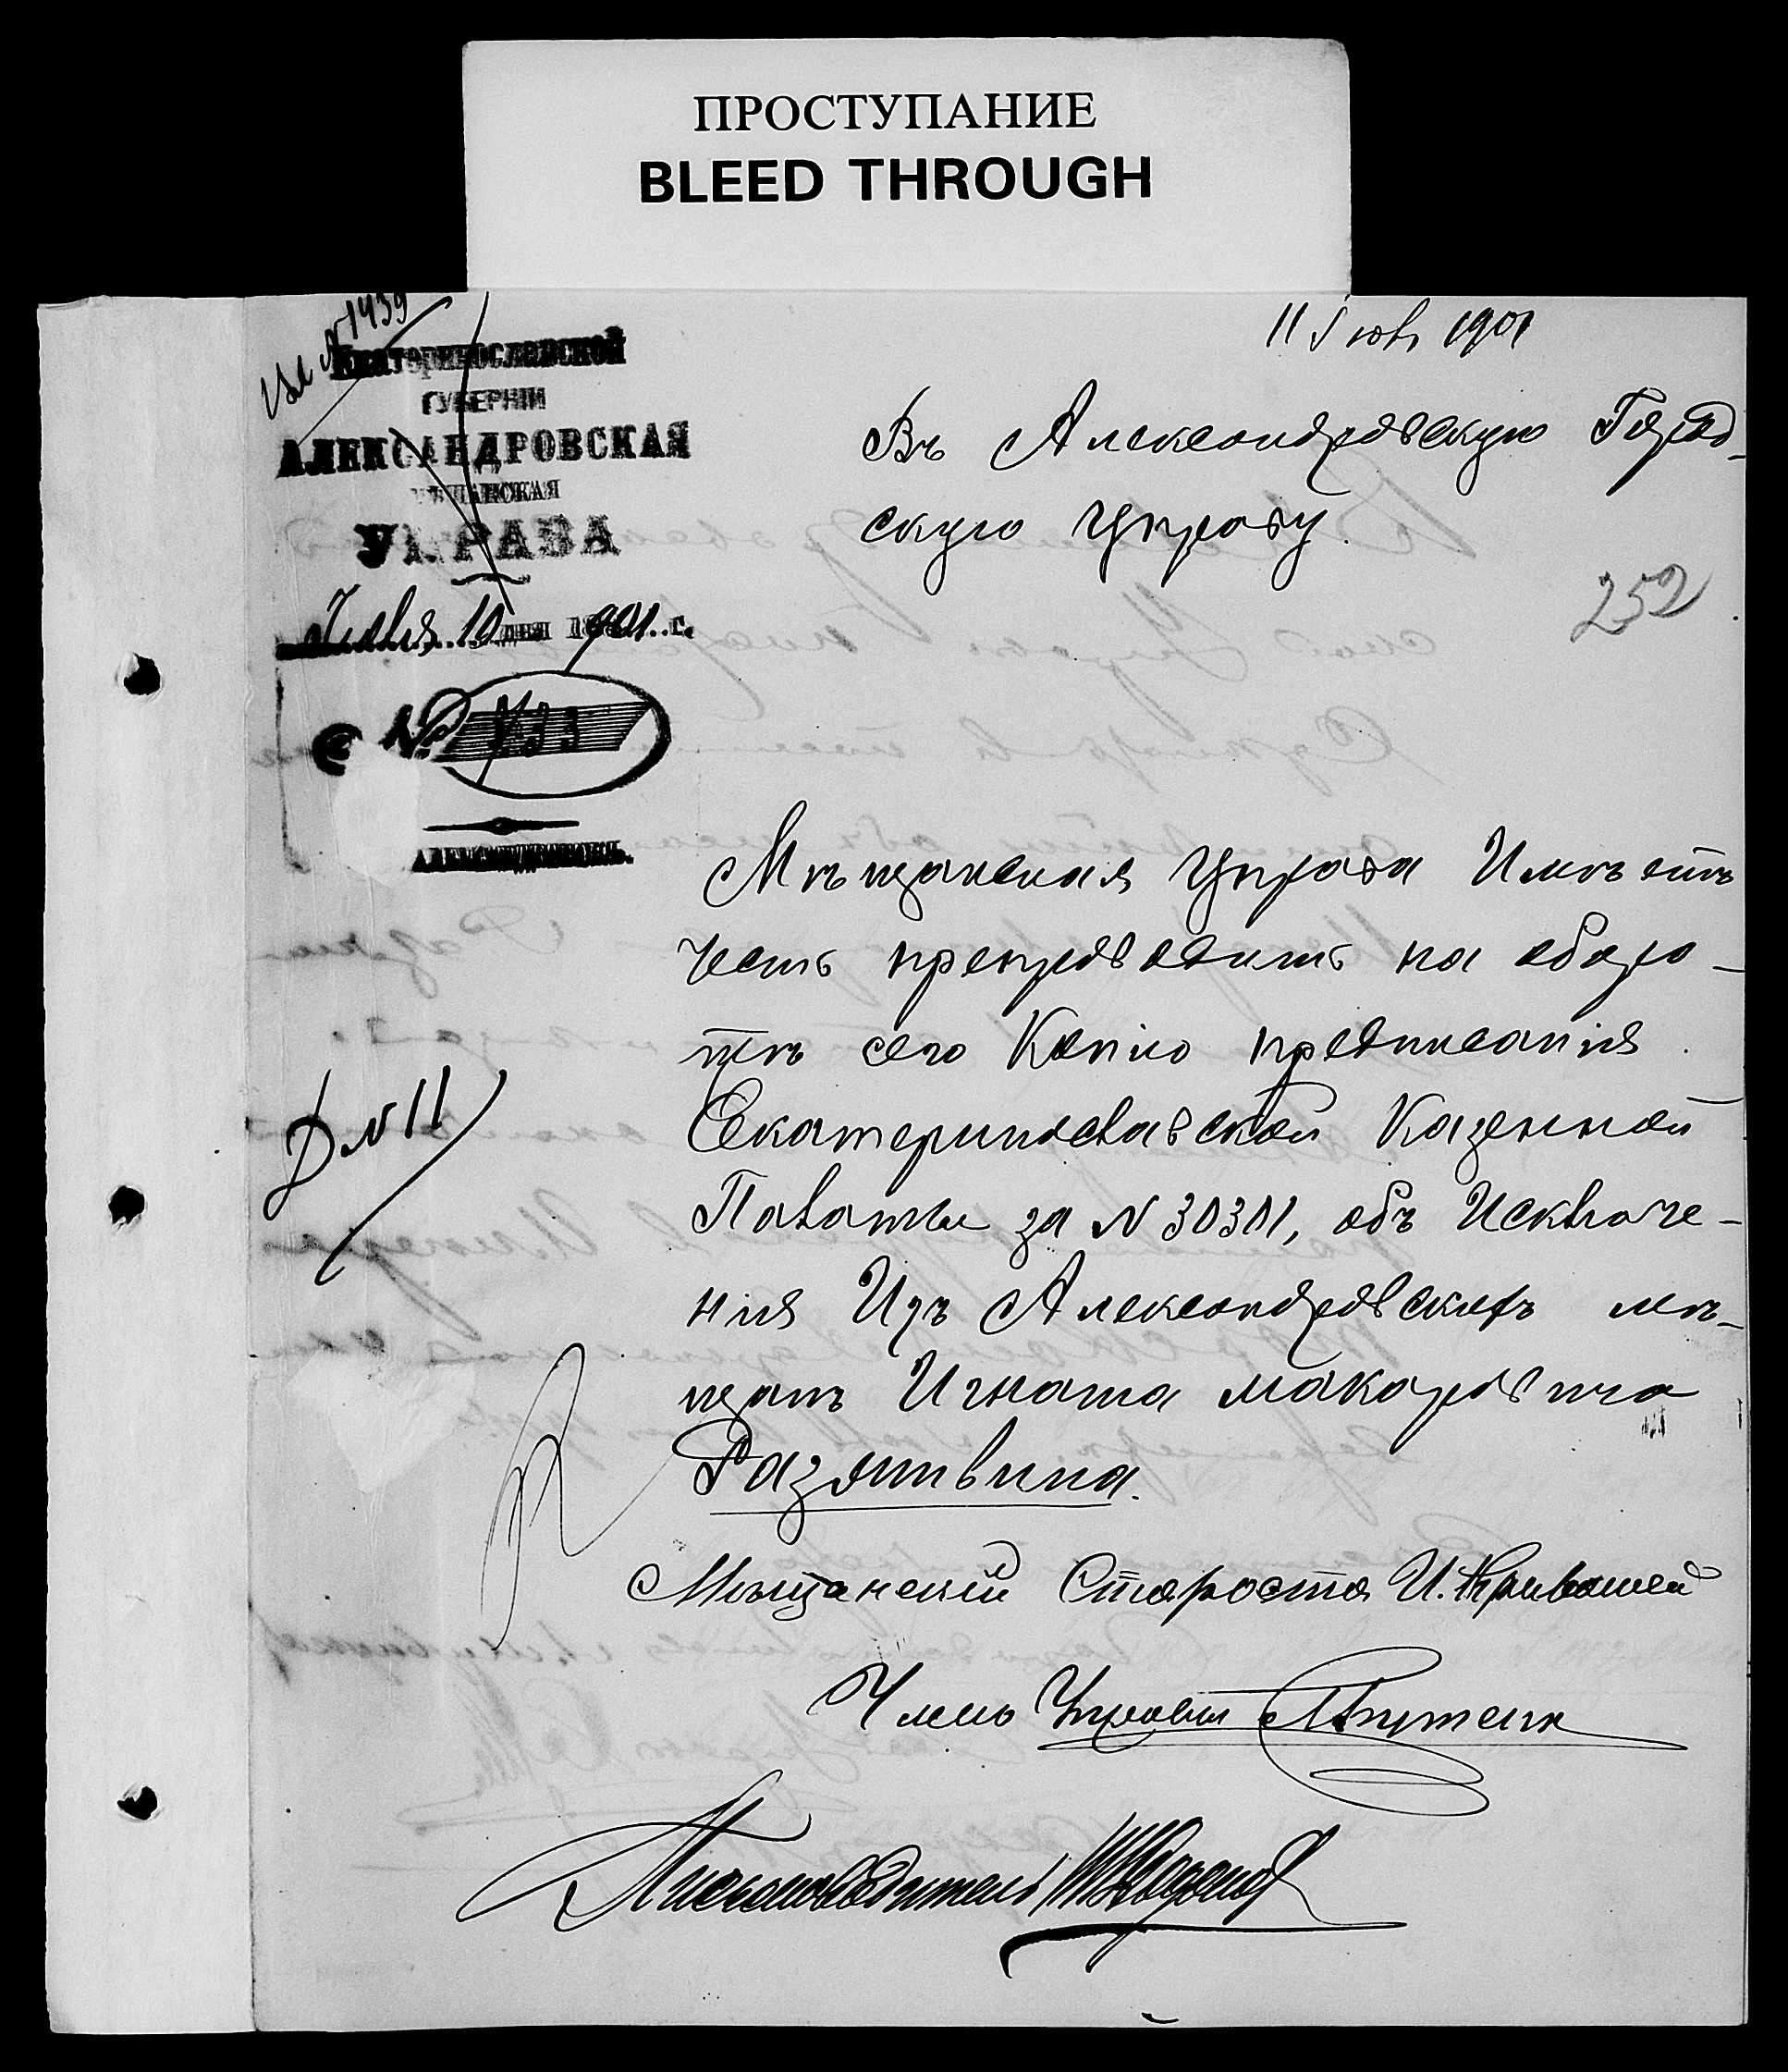 ПРОСТУПАНИЕ
BLEED THROUGH
№ 1439
11 Іюл 1901
Екатеринославской
ГУБЕРНІИ
АЛЕКСАНДРОВСКАЯ
МѢЩАНСКАЯ
УПРАВА
Іюля 10 дня 1901 г.
№
АЛЕКСАНДРОВСКЪ.
Въ Александровскую Город-
скую Управу.
252
Мѣщанская Управа Имѣетъ
честь препроводить на оборо-
тѣ сего Копію предписанія
Екатеринославской Казенной
Палаты за № 30301, объ Исключе-
нія Изъ Александровскихъ мѣ-
щанъ Игната Макаровича
Разятвина.
Д № 11
Мѣщанскій Староста И.
Членъ Управы
Письмоводитель